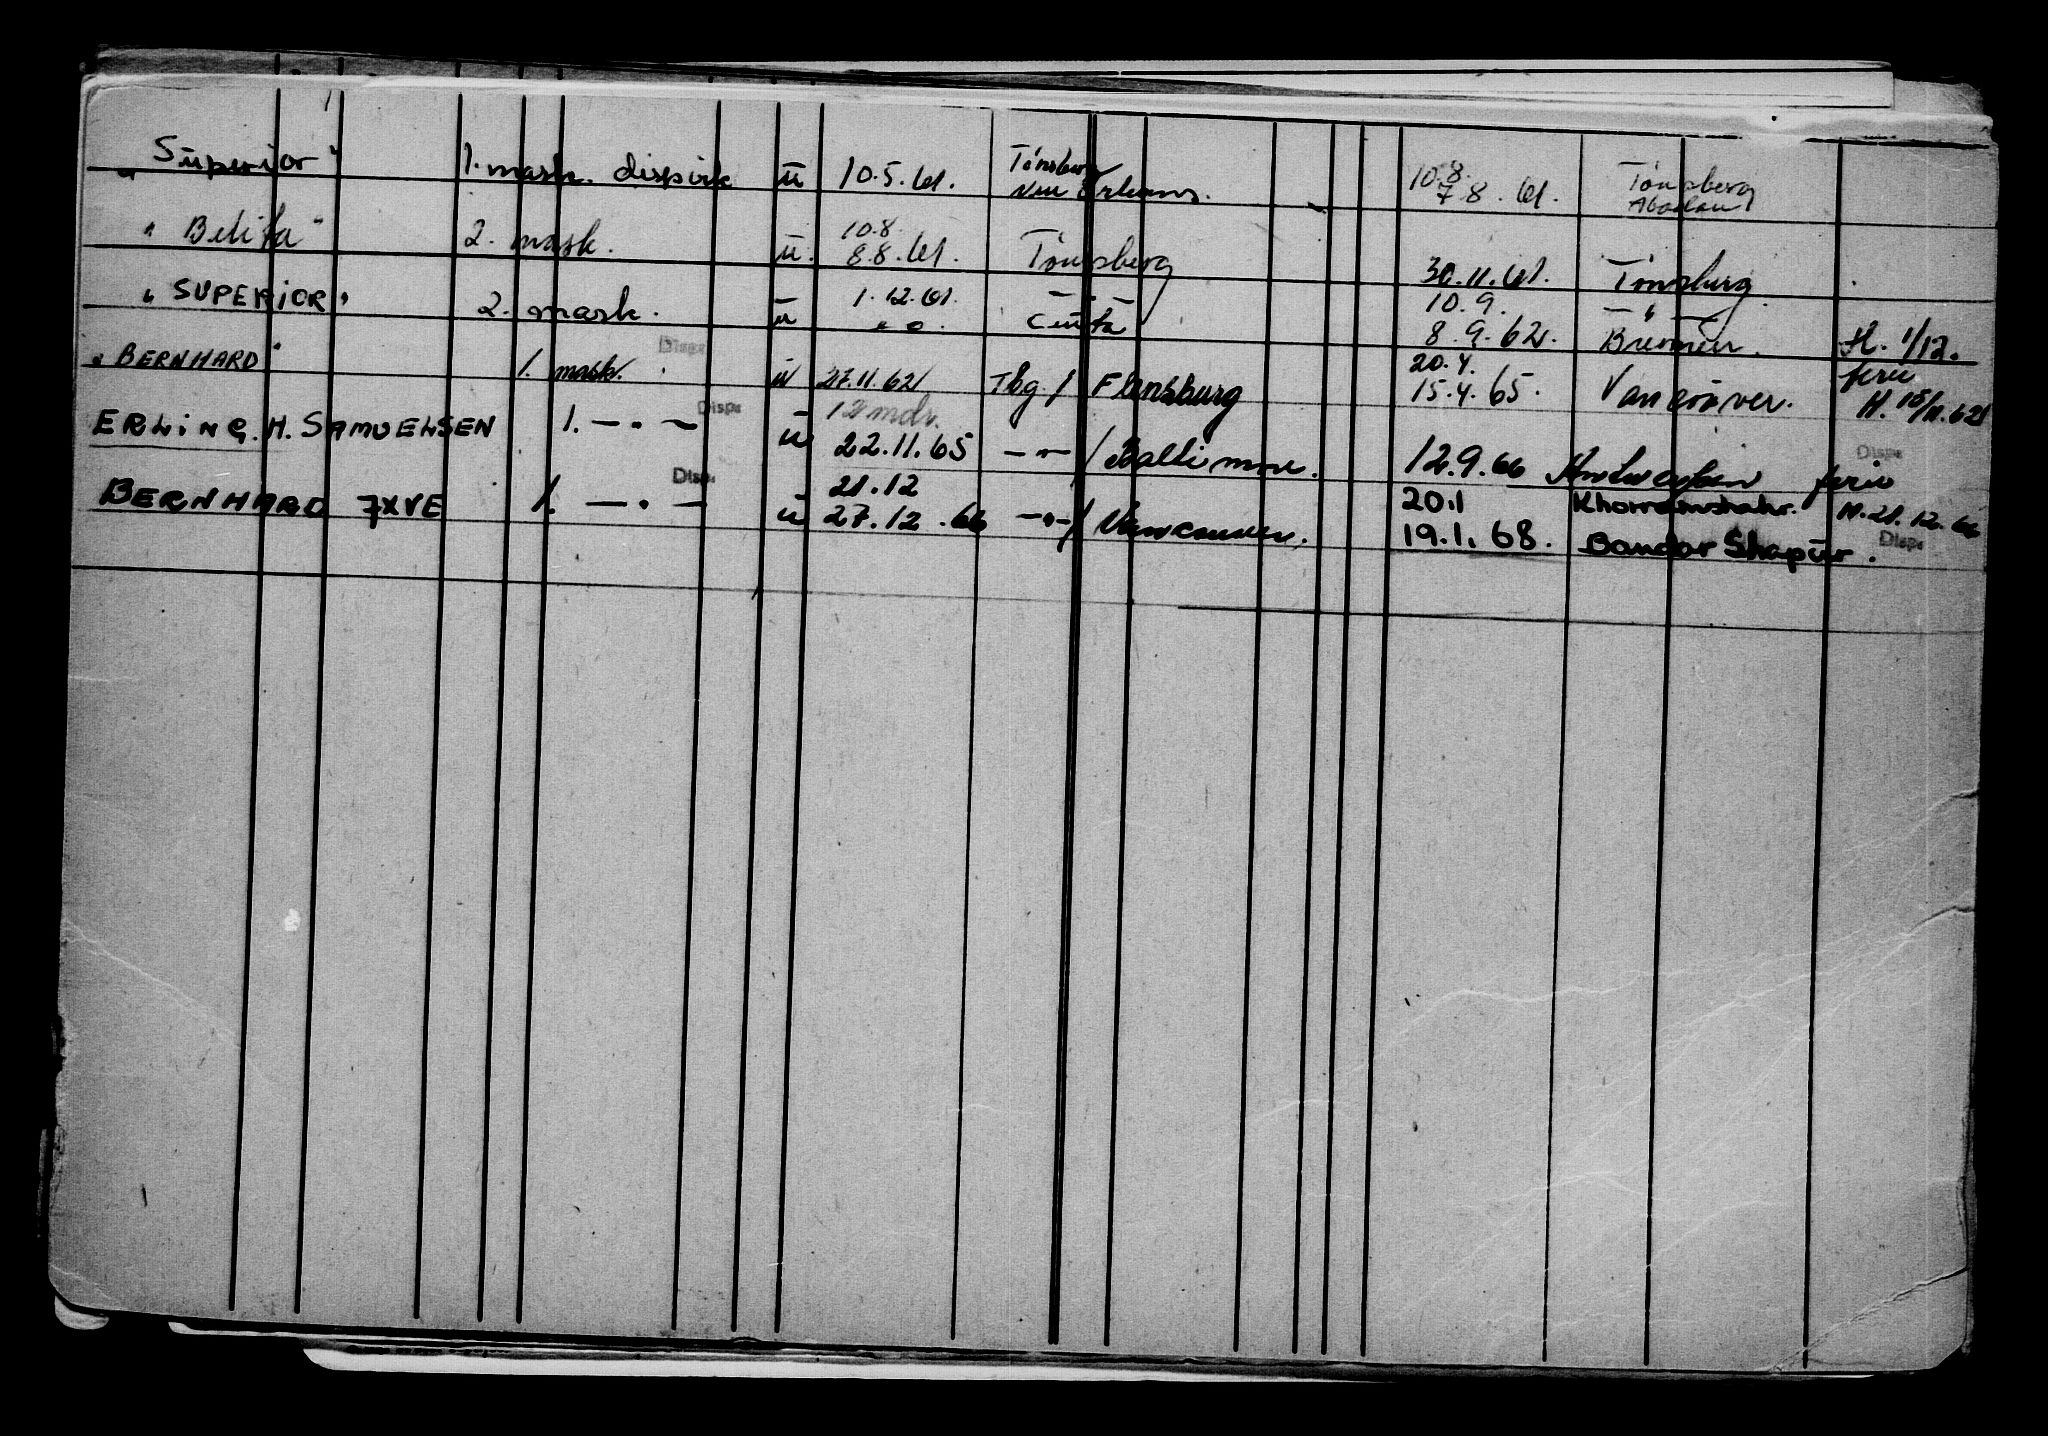 "Superior" 1. mask. dispvis u 10.5.61. Tönsberg New Orleans. 10.8. 7.8.61. Tönsberg Abadan
"Belita" 2. mask. u. 10.8. 8.8.61. Tönsberg 30.11.61. Tönsberg.
"SUPERIOR" 2. mask. u 1.12.61. — " — Ceuta 10.9. 8.9.62. — " — Bremen. H. 1/12.
"BERNHARD" 1. mask. Disps u 27.11.62 Tbg / Flensburg 20.4. 15.4.65. Vancouver. ferie H. 15/11.62
ERLING. H. SAMUELSEN 1. — " — Disps u 12 mdr. 22.11.65 — " — / Baltimore. 12.9.66 Antwerpen ferie Disps
BERNHARD 7XVE 1. — " — Disps u 21.12 27.12.66 — " — / Vancouver. 20.1 19.1.68. Khorramshahr. Bandar Shapur. H. 21.12.66 Disps